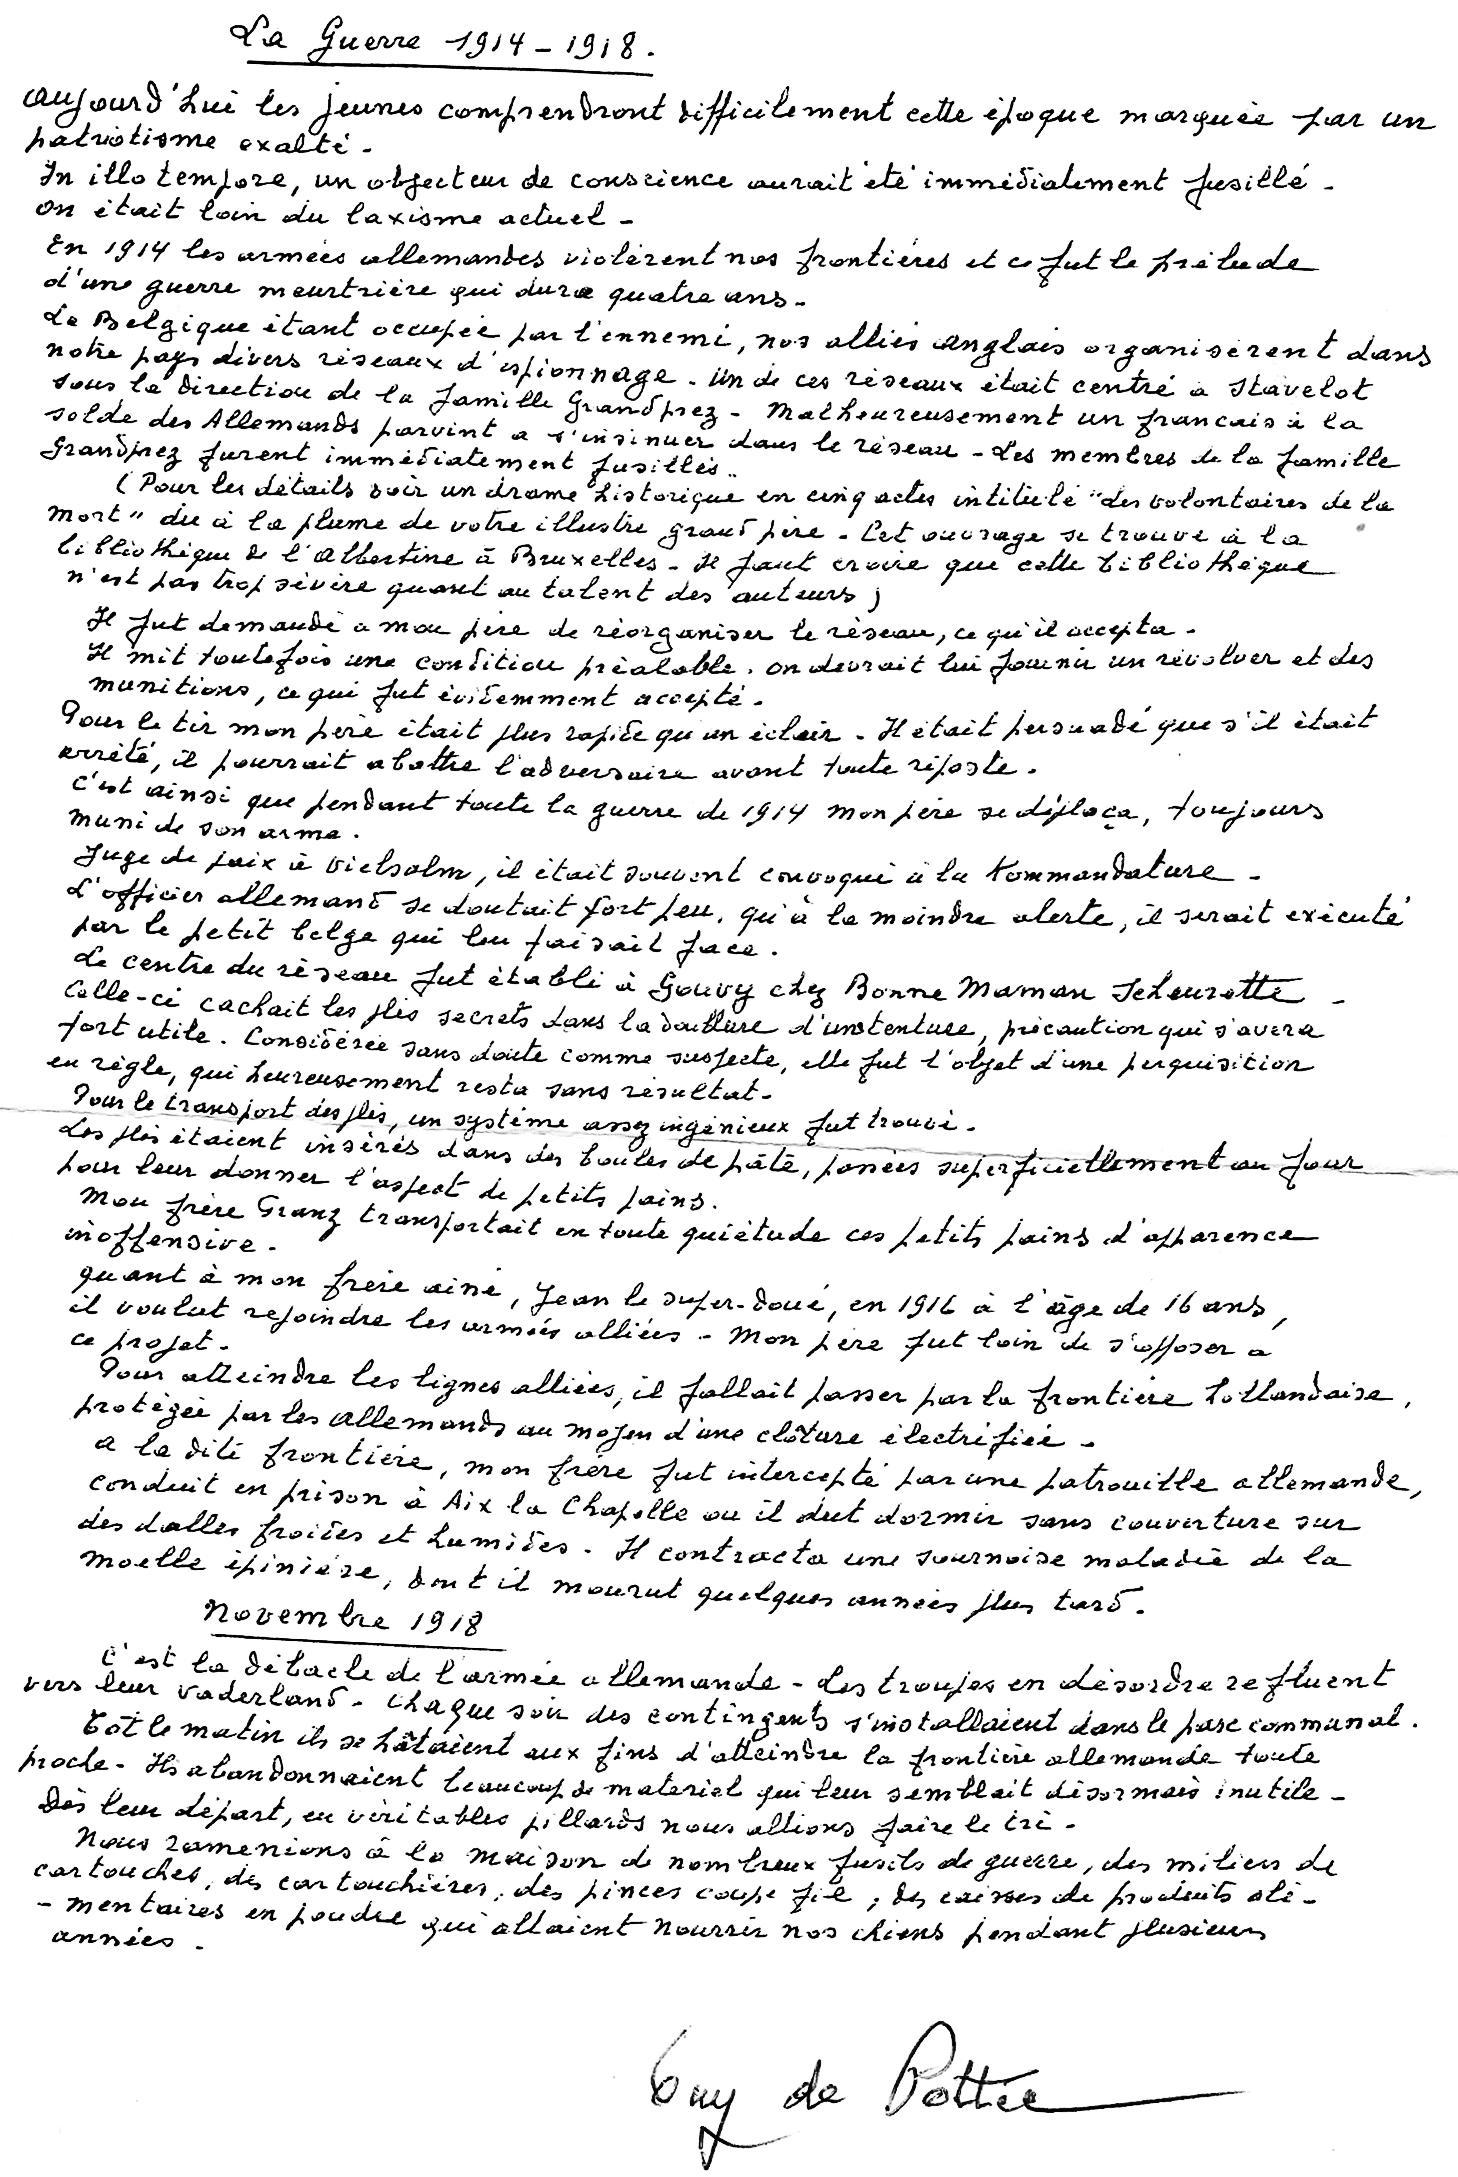 La Guerre 1914-1918.
Aujourd'hui les jeunes comprendront difficilement cette époque marquée par un
patriotisme exalté -
In illo tempore, un objecteur de conscience aurait été immédiatement fusillé -
On était loin du laxisme actuel -
En 1914 les armées allemandes violèrent nos frontières et ce fut le prélude
d'une guerre meurtrière qui dura quatre ans -
La Belgique étant occupée par l'ennemi, nos alliés anglais organisèrent dans
notre pays divers réseaux d'espionnage - Un de ces réseaux était centré à Stavelot
sous la direction de la famille Grandprez - Malheureusement un francais à la
solde des Allemands parvint a s'insinuer dans le réseau - Les membres de la famille
Grandprez furent immédiatement fusillés..
(Pour les détails voir un drame historique en cinq actes intitulé "des volontaires de la
mort" du à la plume de votre illustre grand père - Cet ouvrage se trouve à la
bibliothèque de l'Albertine à Bruxelles - Il faut croire que cette bibliothèque
n'est pas trop sévère quant au talent des auteurs)
Il fut demandé a mon père de réorganiser le réseau, ce qu'il accepta -
Il mit toutefois une condition préalable. On devrait lui fournir un révolver et des
munitions, ce qui fut évidemment accepté -
Pour le tir mon père était plus rapide qu'un éclair - Il était persuadé que s'il était
arrêté, il pourrait abattre l'adversaire avant toute riposte -
C'est ainsi que pendant toute la guerre de 1914 mon père se déplaça, toujours
muni de son arme.
Juge de paix à Vielsalm, il était souvent convoqué à la Kommandature -
L'officier allemand se doutait fort peu, qu'à la moindre alerte, il serait exécuté
par le petit belge qui lui faisait face.
Le centre du réseau fut établi à Gouvy chez Bonne Maman Scheurette -
Celle-ci cachait les plis secrets dans la doublure d'une tenture, précaution qui s'avéra
fort utile. Considérée sans doute comme suspecte, elle fut l'objet d'une perquisition
en règle, qui heureusement resta sans résultat -
Pour le transport des plis, un système assez ingénieux fut trouvé -
Les plis étaient insérés dans des boules de pâte, panées superficiellement au four
pour leur donner l'aspect de petits pains.
Mon frère Granz transportait en toute quiétude ces petits pains d'apparence
inoffensive -
quant à mon frère ainé, Jean le super-doué, en 1916 à l'âge de 16 ans,
il voulut rejoindre les armées alliées - Mon père fut loin de s'opposer a
ce projet -
Pour atteindre les lignes alliées, il fallait passer par la frontière hollandaise,
protégée par les allemands au moyen d'une clôture électrifiée -
A la dite frontière, mon frère fut intercepté par une patrouille allemande,
conduit en prison à Aix la Chapelle ou il dut dormir sans couverture sur
des dalles froides et humides - Il contracta une sournoise maladie de la
moelle épinière, dont il mourut quelques années plus tard -
Novembre 1918
C'est la débacle de l'armée allemande - Les troupes en désordre refluent
vers leur vaderland - Chaque soir des contingents s'installaient dans le parc communal.
Tôt le matin ils se hâtaient aux fins d'atteindre la frontière allemande toute
proche - Ils abandonnaient beaucoup de materiel qui leur semblait désormais inutile -
Dès leur départ, en véritables pillards nous allions faire le tri -
Nous ramenions à la maison de nombreux fusils de guerre, des milliers de
cartouches, des cartouchières, des pinces coupe fil, des caisses de produits ali-
-mentaires en poudre qui allaient nourrir nos chiens pendant plusieurs
années -
Guy de Pottée